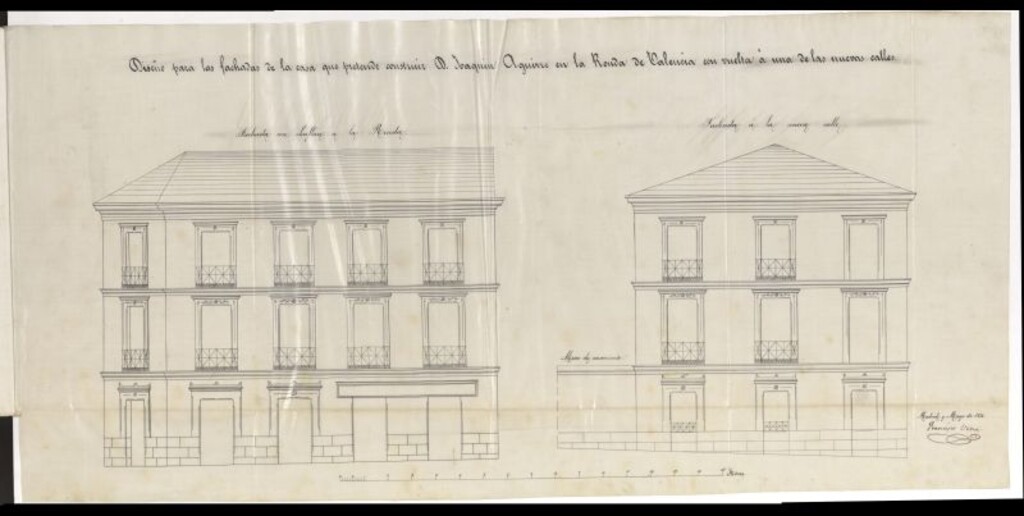 Diseño para las fachadas de la casa que pretende construir D. Joaquin Aguirre en la Ronda de Valencia con vuelta á una de las nuevas calles
Fachada a la Ronda
Fachada á la nueva calle
Muro de
Madrid y Mayo de
Francisco